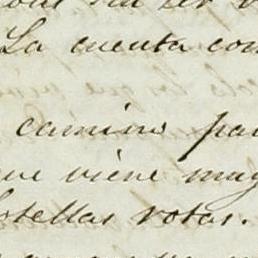 La cuenta con
camino pa
ue viene muy
otellas rotas.